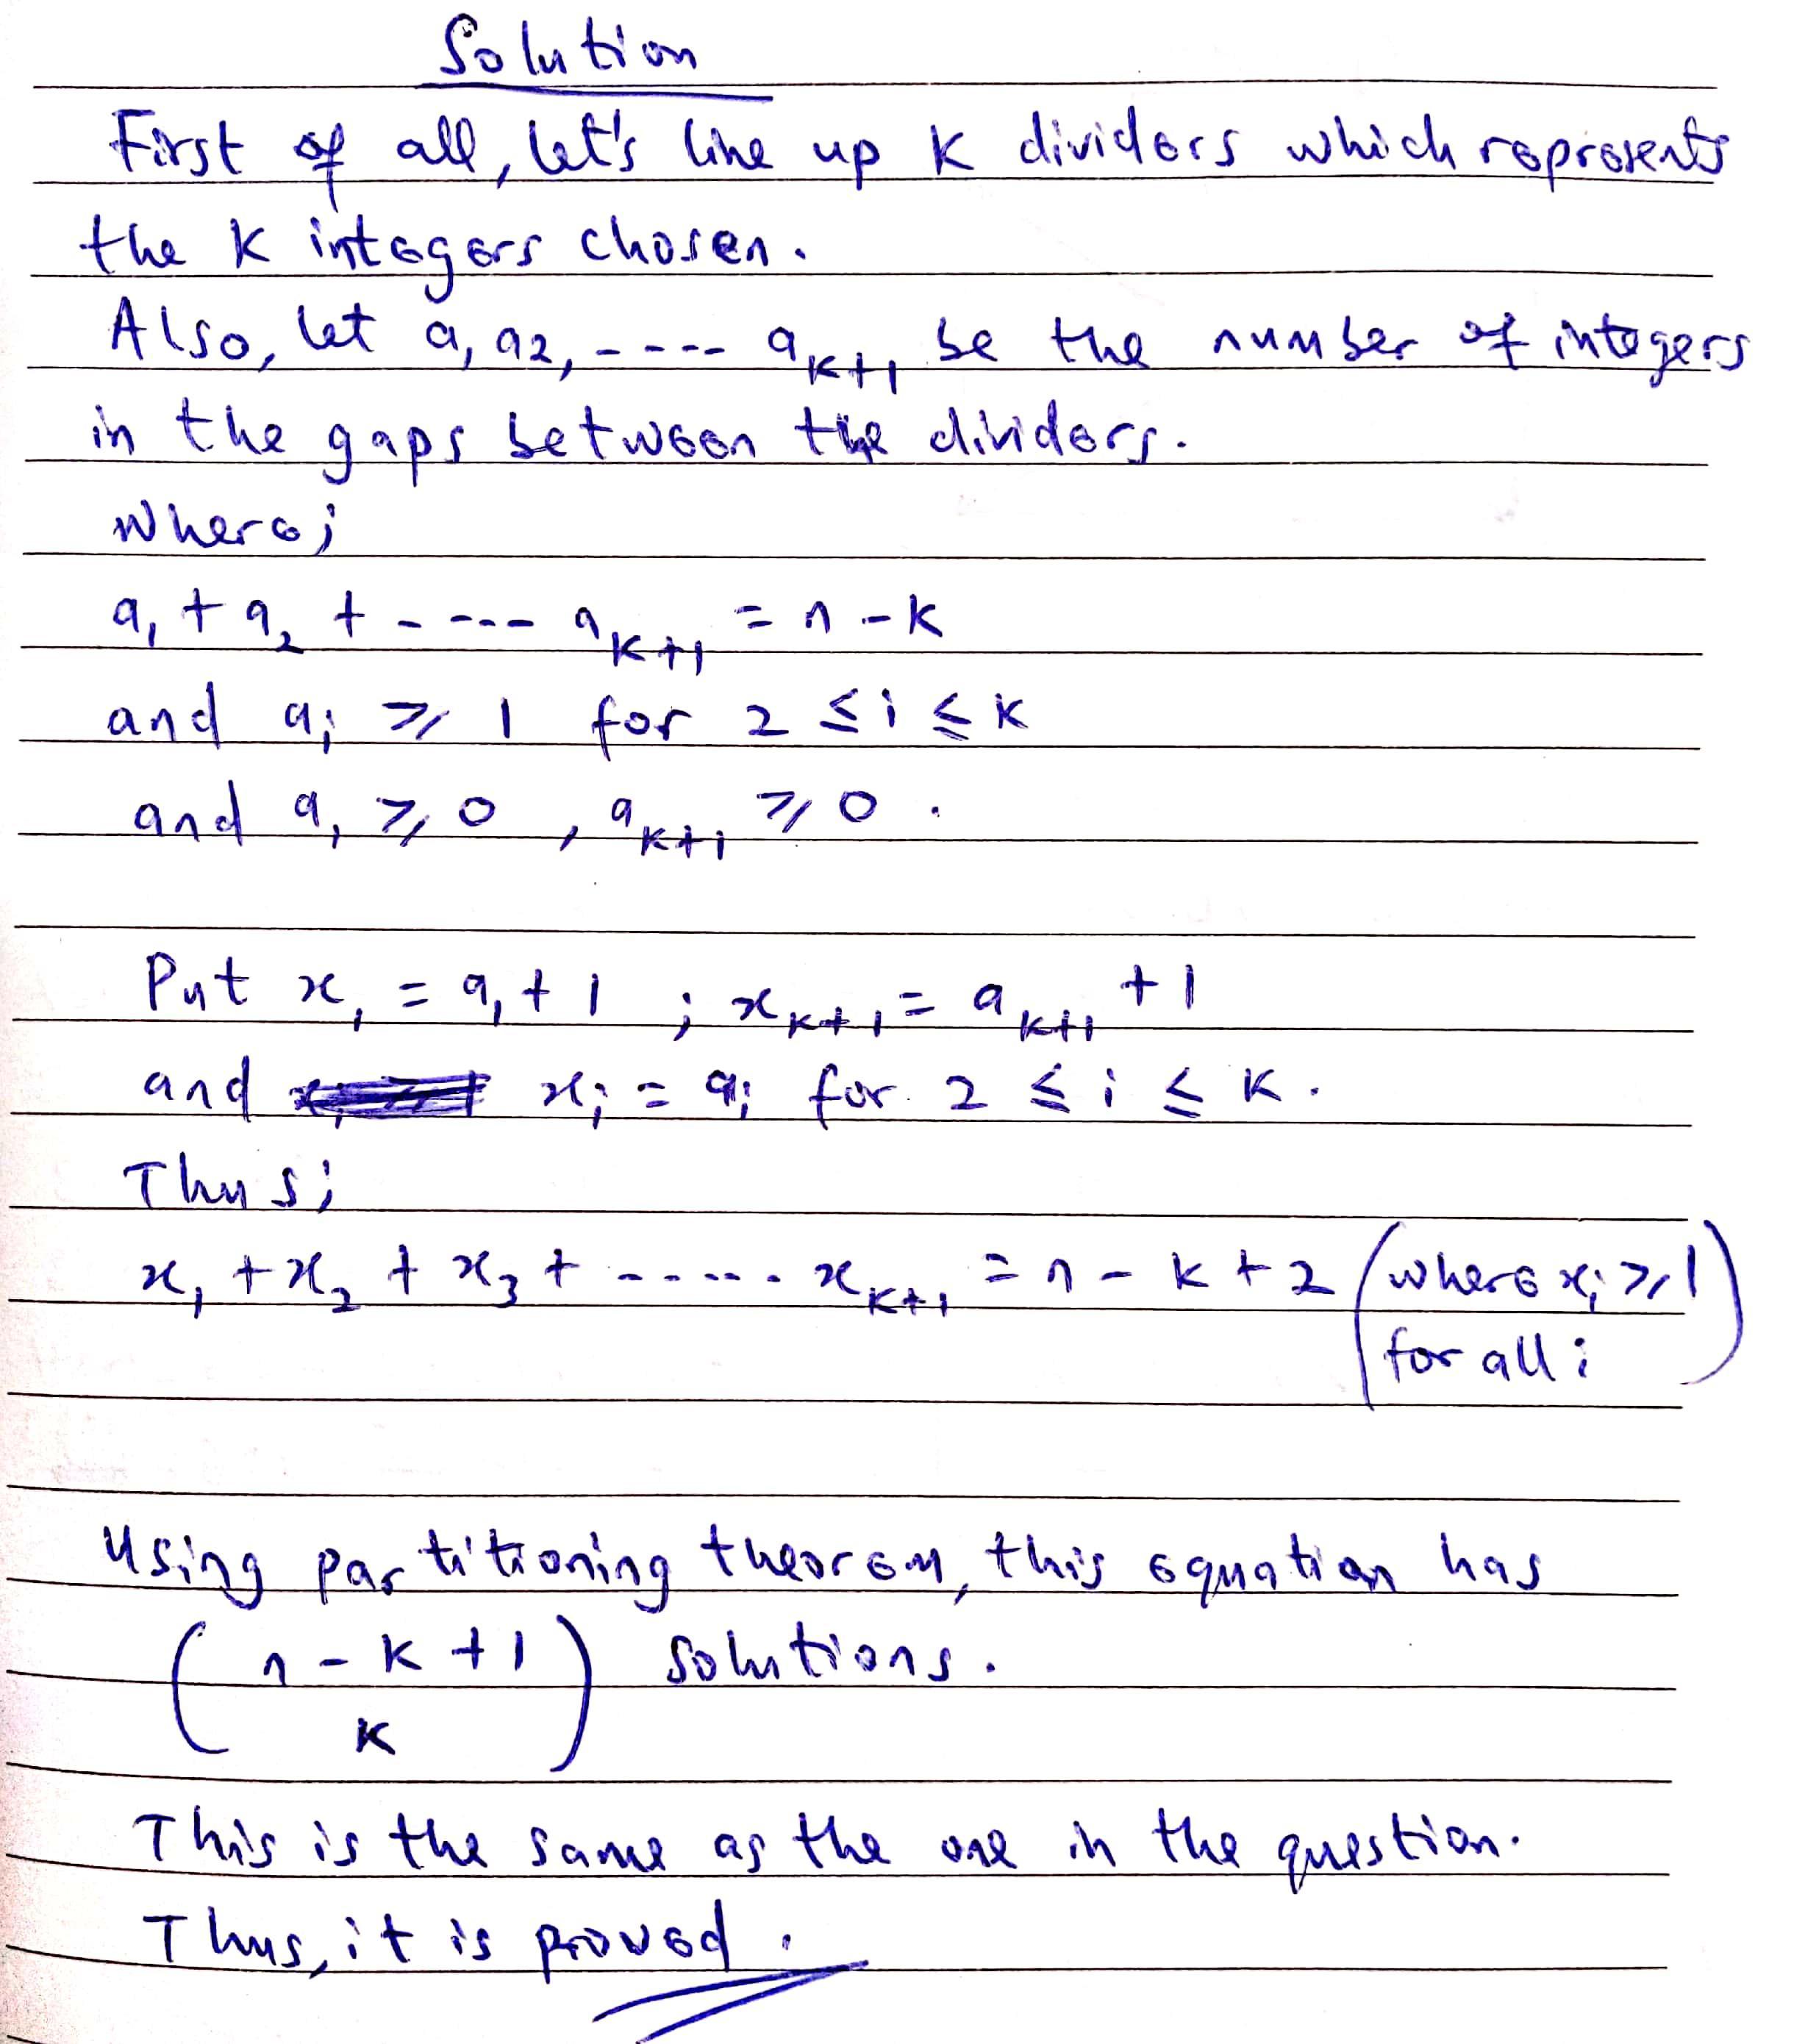 Solution
First of all, let's line up K dividers which represents
the K integers chosen.
Also, let a₁ a₂, ---- aₖ₊₁, be the number of integers
in the gaps between the dividers.
Where;
a₁ + a₂ + ---- aₖ₊₁ = n - K
and aᵢ ≥ 1 for 2 ≤ i ≤ K
and a₁ ≥ 0 , aₖ₊₁ ≥ 0 .
Put x₁ = a₁ + 1 ; xₖ₊₁ = aₖ₊₁ + 1
and xᵢ = aᵢ for 2 ≤ i ≤ K .
Thus;
x₁ + x₂ + x₃ + ----- xₖ₊₁ = n - K + 2 (where xᵢ ≥ 1
for all i)
Using partitioning theorem, this equation has
(n - K + 1
K) solutions.
This is the same as the one in the question.
Thus, it is proved .